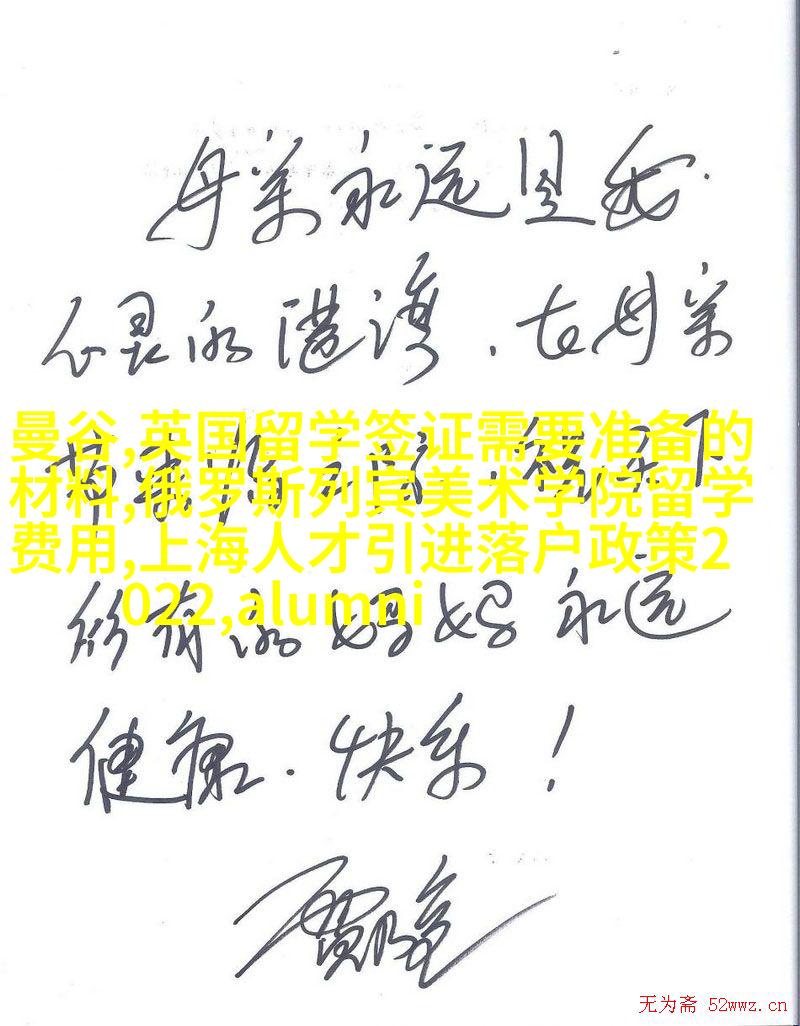 母亲永远是我
心灵的港湾，在母亲
曼谷,英国留学签证需要准备的
节来临 天下
材料,俄罗斯列宾美术学院留学
费用,上海人才引进落户政策2
022,alumni
所有的妈妈永远
健康、快乐！
无为斋 52wwz.cn